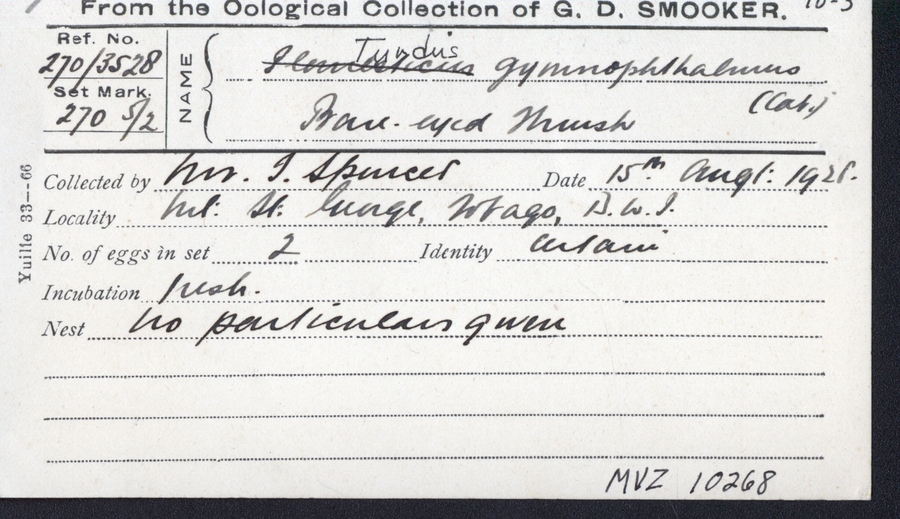 From the Oological Collection of G. D. SMOOKER. 10-5
Ref. No.
270/3528
Set Mark.
270 5/2
NAME
Turdus
gymnophthalmus
(Cab.)
Bare-eyed Thrush
Collected by Mr. I. Spencer Date 15th Augt: 1928.
Locality Mt. St. George, Tobago, B.W.I.
No. of eggs in set 2 Identity certain
Incubation fresh.
Nest No particulars given
Yuille 33—66
MVZ 10268